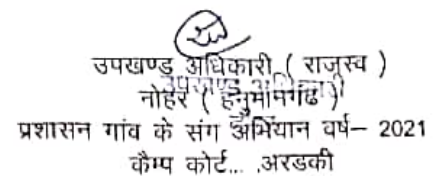 उपखण्ड अधिकारी ( राजस्व )
उपखण्ड अधिकारी
नोहर ( हनुमानगढ )
प्रशासन गांव के संग अभियान वर्ष– 2021
कैम्प कोर्ट... .अरडकी